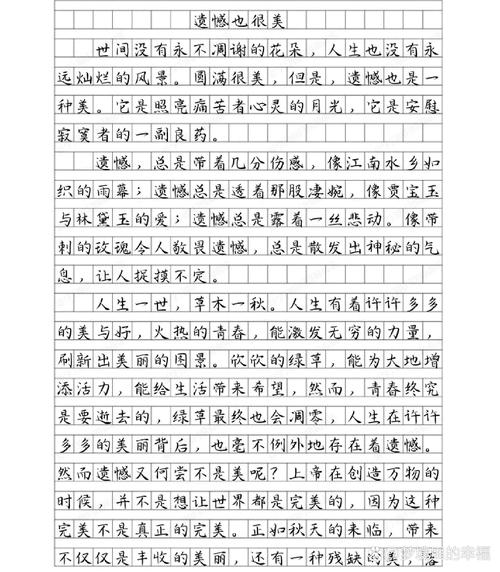 遗憾也很美
世间没有永不凋谢的花朵，人生也没有永
远灿烂的风景。圆满很美，但是，遗憾也是一
种美。它是照亮痛苦者心灵的月光，它是安慰
寂寞者的一副良药。
遗憾，总是带着几分伤感，像江南水乡如
织的雨幕；遗憾总是透着那股凄婉，像贾宝玉
与林黛玉的爱；遗憾总是露着一丝悲动。像带
刺的玫瑰令人敬畏遗憾，总是散发出神秘的气
息，让人捉摸不定。
人生一世，草木一秋。人生有着许许多多
的美与好，火热的青春，能激发无穷的力量，
刷新出美丽的图景。欣欣的绿草，能为大地增
添活力，能给生活带来希望，然而，青春终究
是要逝去的，绿草最终也会凋零，人生在许许
多多的美丽背后，也毫不例外地存在着遗憾。
然而遗憾又何尝不是美呢？上帝在创造万物的
时候，并不是想让世界都是完美的，因为这种
完美不是真正的完美。正如秋天的来临，带来
不仅仅是丰收的美丽，还有一种残缺的美，落
的幸福